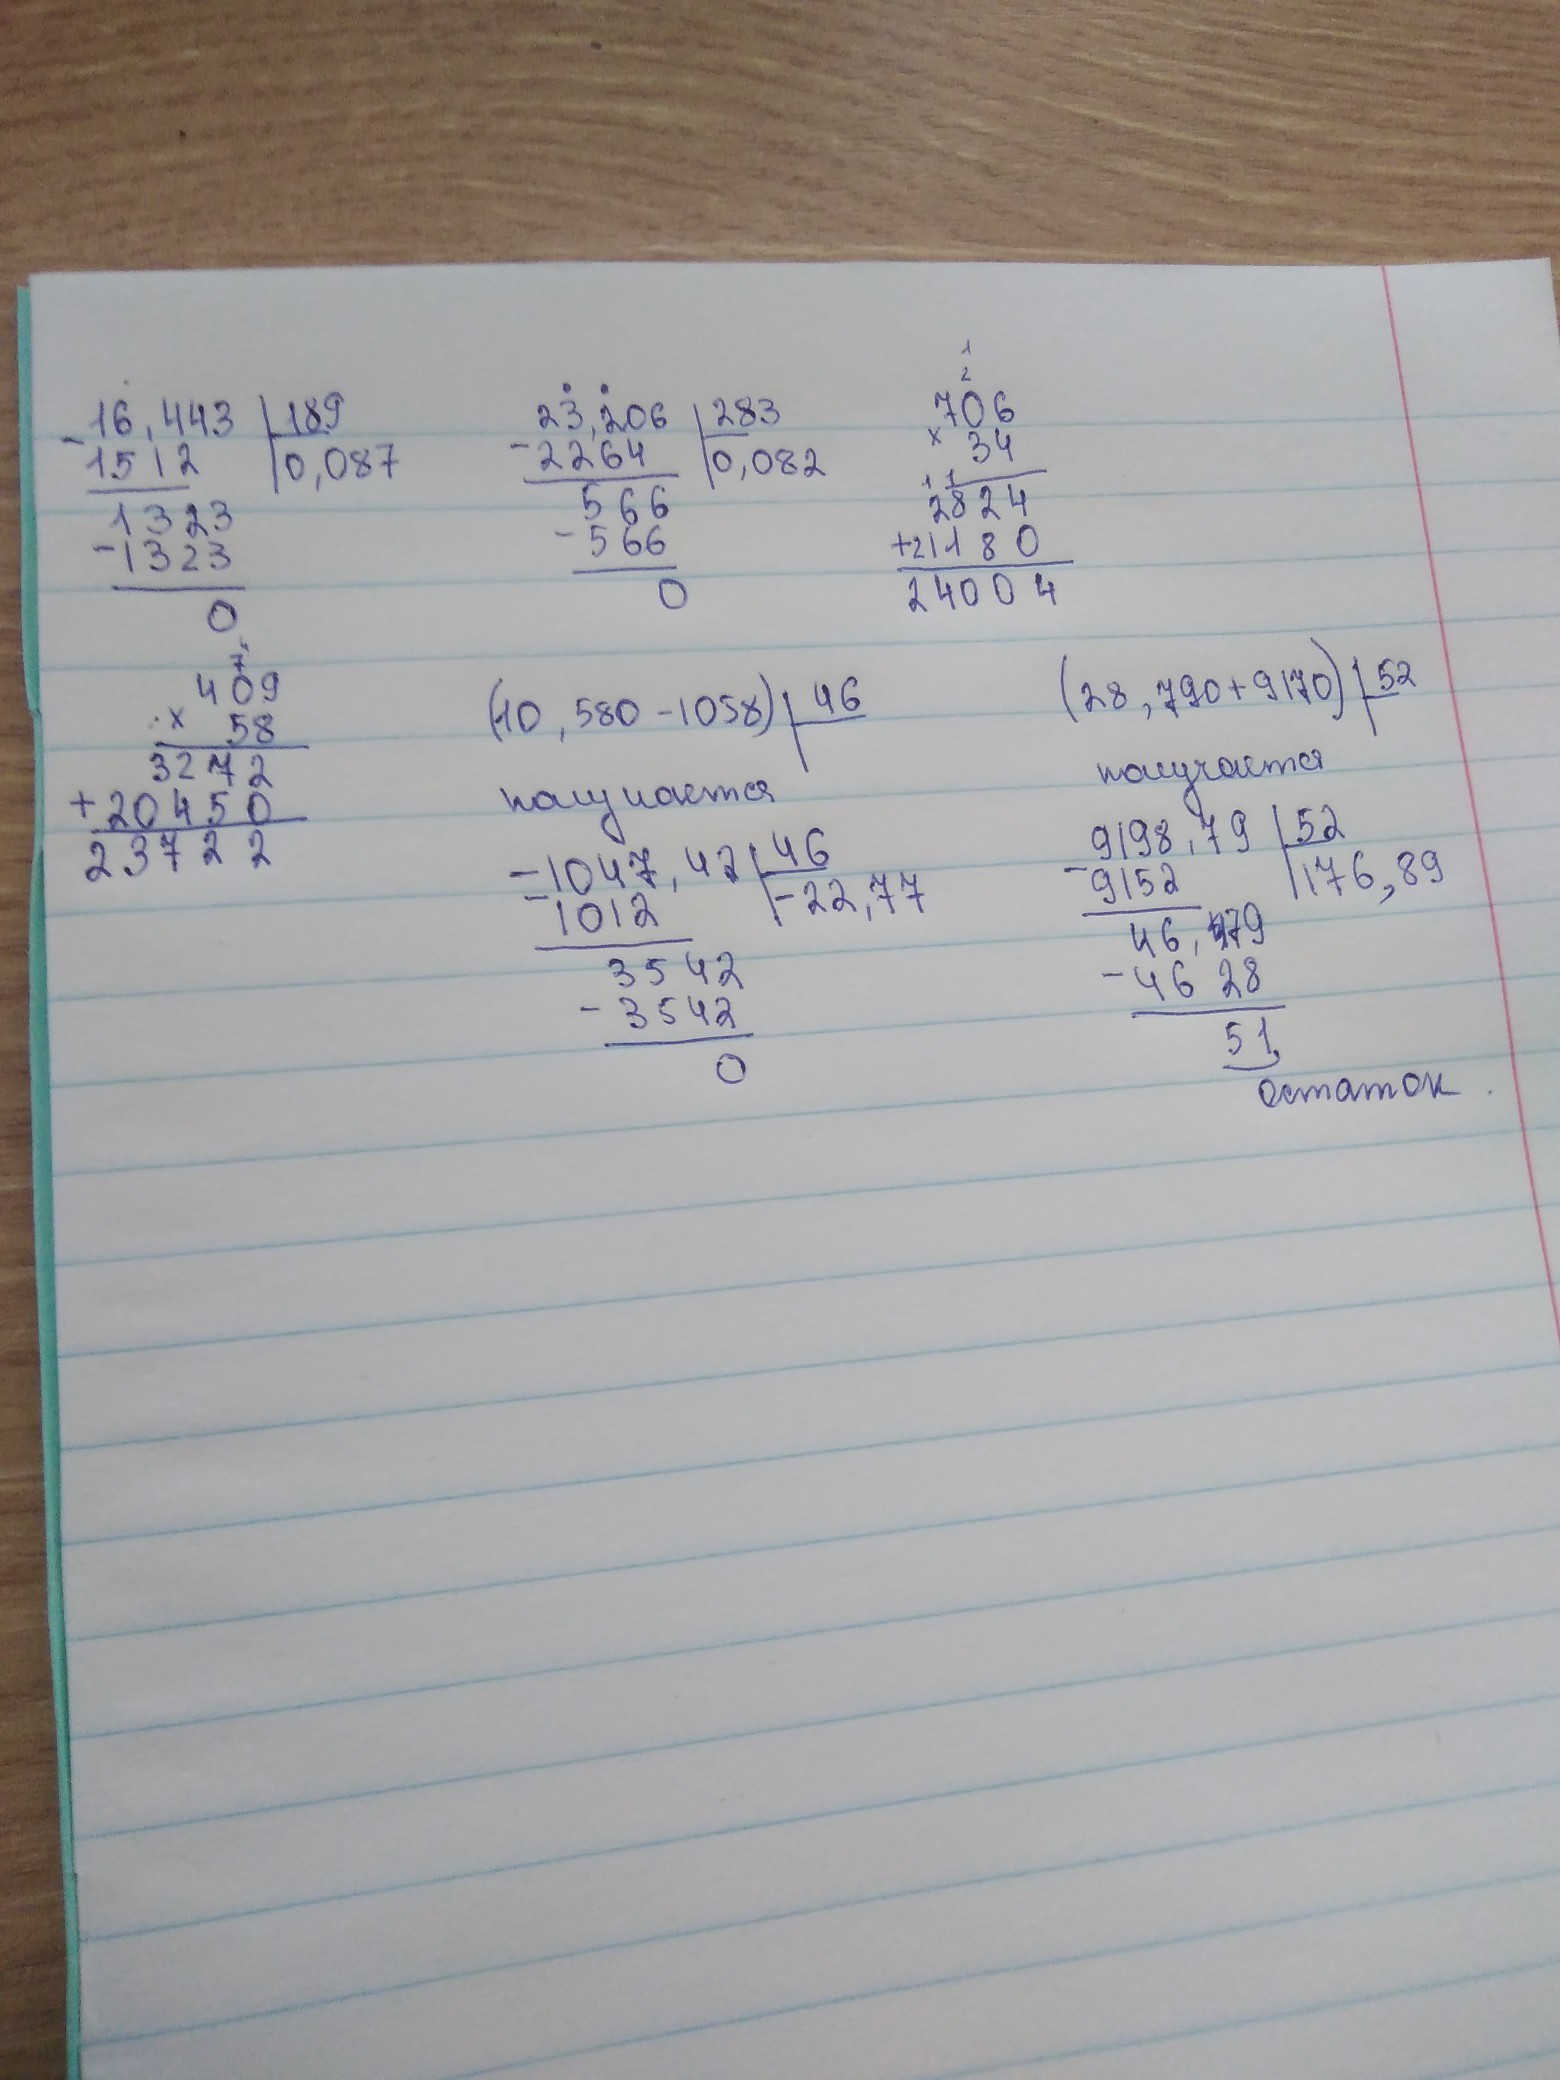 16,443 | 189
- 1512 | 0,087
1323
- 1323
0
23,206 | 283
- 2264 | 0,082
566
- 566
0
1
2
706
× 34
1 1
2824
+ 21180
24004
7
409
× 58
3272
+ 20450
23722
(10,580-1058) | 46
получается
-1047,42 | 46
- 1012 | -22,77
3542
- 3542
0
(28,790+9170) | 52
получается
9198,79 | 52
- 9152 | 176,89
46,79
- 4628
51
остаток